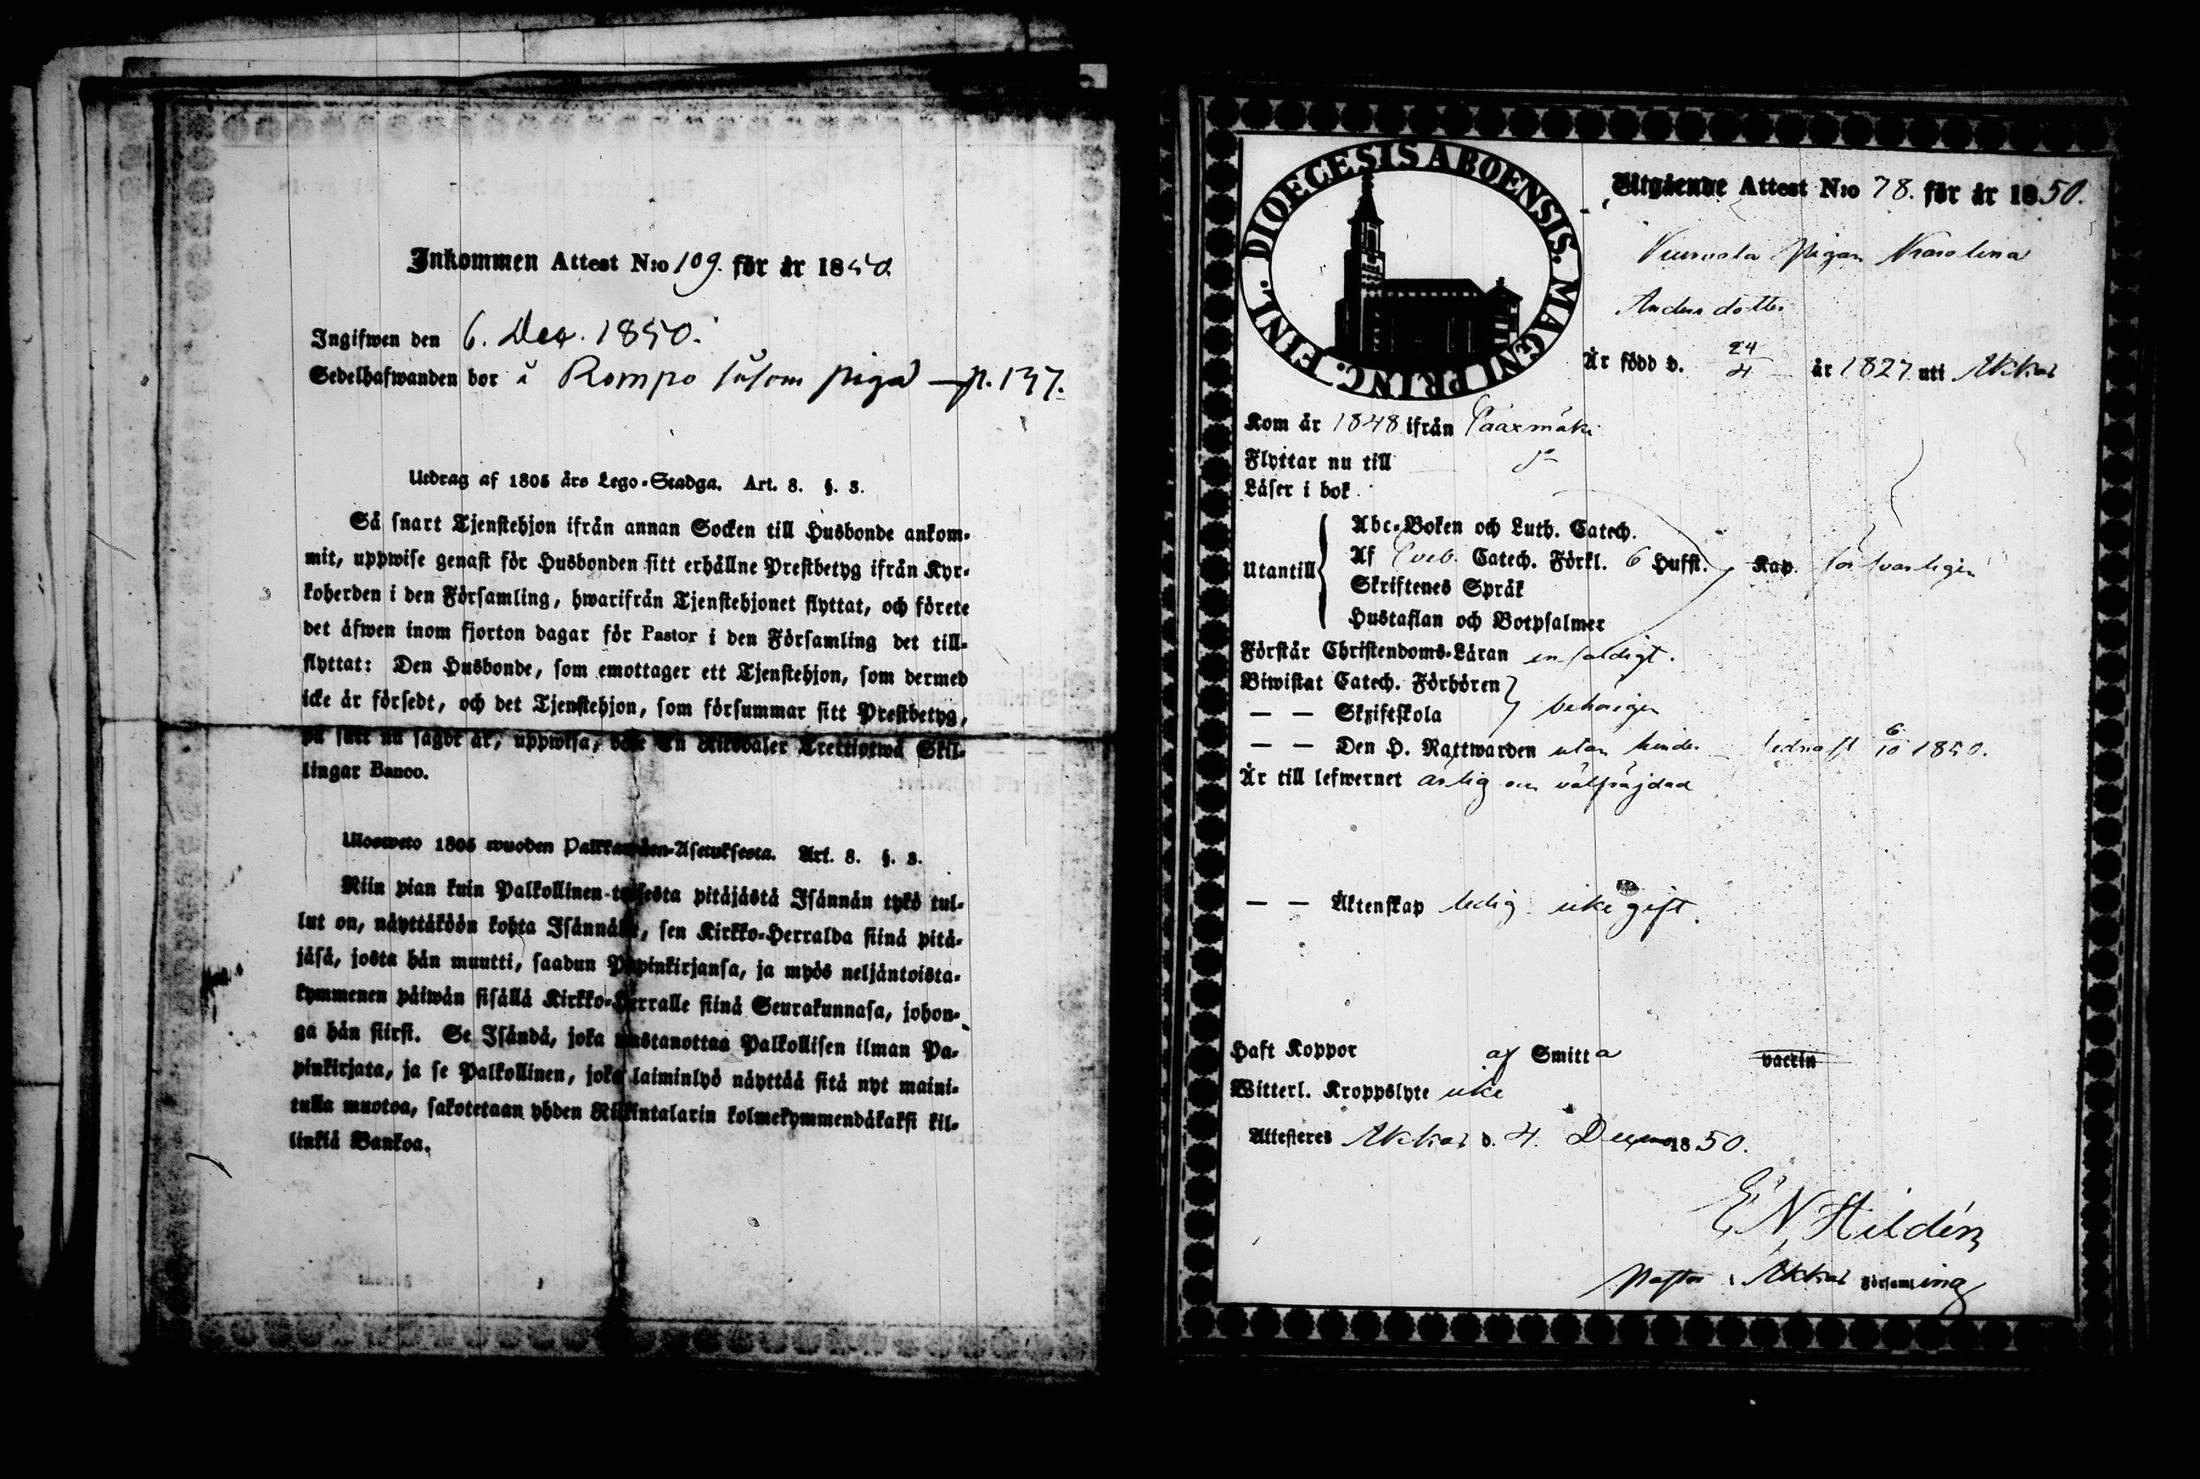 Inkommen Attest N:o 109. för år 1850.
Ingifwen den 6. Dec. 1850.
Sedelhafwanden bor å Rompo såsom piga — p. 137.
Utdrag af 1805 års Lego-Stadga. Art. 8. §. 3.
Så snart Tjenstehjon ifrån annan Socken till Husbonde ankom-
mit, uppwise genast för Husbonden sitt erhållne Prestbetyg ifrån Kyr-
koherden i den Församling, hwarifrån Tjenstehjonet flyttat, och förete
det äfwen inom fjorton dagar för Pastor i den Församling det till-
flyttat: Den Husbonde, som emottager ett Tjenstehjon, som dermed
icke är försedt, och det Tjenstehjon, som försummar sitt Prestbetyg,
på sätt nu sagdt är, uppwisa, böte En Riksdaler Trettiotwå Skil-
lingar Banco.
Ulosweto 1805 wuoden Palkkawäen-Asetuksesta. Art. 8. §. 3.
Niin pian kuin Palkollinen toisesta pitäjästä Isännän tykö tul-
lut on, näyttäköön kohta Isännälle, sen Kirkko-Herralda siinä pitä-
jäsä, josta hän muutti, saadun Papinkirjansa, ja myös neljäntoista-
kymmenen päiwän sisällä Kirkko-Herralle siinä Seurakunnasa, johon-
ga hän siirsi. Se Isändä, joka wastanottaa Palkollisen ilman Pa-
pinkirjata, ja se Palkollinen, joka laiminlyö näyttää sitä nyt maini-
tulla muotoa, sakotetaan yhden Riikintalarin kolmekymmendäkaksi kil-
linkiä Bankoa.
DIOECESIS ABOENSIS. MAGNI PRINC. FINL.
Utgående Attest N:o 78. för år 1850.
pigan Karolina
Andersdotter
Är född d. 24/4 år 1827 uti Akkas
Kom år 1848 ifrån Sääxmäki
Flyttar nu till do
Läser i bok
Utantill
Abc-Boken och Luth. Catech.
Af Sveb. Catech. Förkl. 6 Hufst. Kap. försvarligen
Skriftenes Språk
Hustaflan och Botpsalmer
Förstår Christendoms-Läran enfaldigt.
Biwistat Catech. Förhören
— — Skriftskola behörigen
— — Den H. Nattwarden utan hinder sednast 6/10 1850.
Är till lefwernet ärlig och välfräjdad
— — Äktenskap ledig icke gift.
Haft Koppor af Smitta vaccin
Witterl. Kroppslyte icke
Attesteres Akkas d. 4. Decem 1850.
E N Hildén
Pastor i Akkas Församling